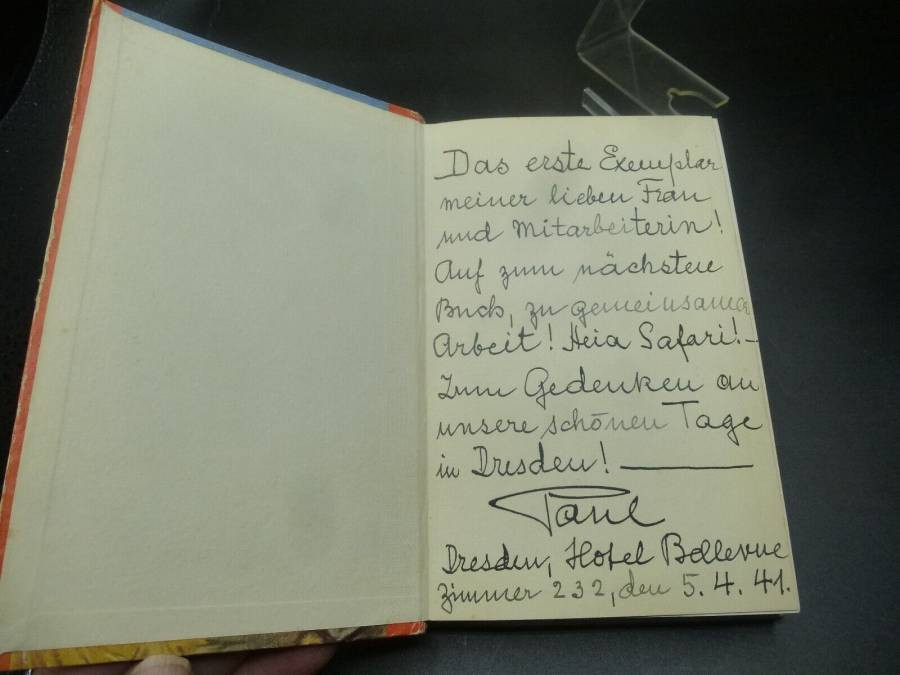 Das erste Exemplar
meiner lieben Frau
und Mitarbeiterin!
Auf zum nächsten
Buch, zu gemeinsamer
Arbeit! Heia Safari! –
Zum Gedenken an
unsere schönen Tage
in Dresden! —
Paul
Dresden, Hotel Bellevue
Zimmer 232, den 5.4.41.